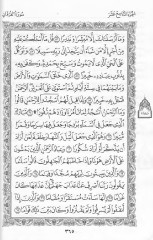 الجزء التاسع عشر سورة الفرقان
وَمَا أَرْسَلْنَاكَ إِلَّا مُبَشِّرًا وَنَذِيرًا ٥٦ قُلْ مَا أَسْأَلُكُمْ عَلَيْهِ
مِنْ أَجْرٍ إِلَّا مَن شَاءَ أَن يَتَّخِذَ إِلَىٰ رَبِّهِ سَبِيلًا ٥٧ وَتَوَكَّلْ
عَلَى الْحَيِّ الَّذِي لَا يَمُوتُ وَسَبِّحْ بِحَمْدِهِ وَكَفَىٰ بِهِ بِذُنُوبِ
عِبَادِهِ خَبِيرًا ٥٨ الَّذِي خَلَقَ السَّمَاوَاتِ وَالْأَرْضَ وَمَا
بَيْنَهُمَا فِي سِتَّةِ أَيَّامٍ ثُمَّ اسْتَوَىٰ عَلَى الْعَرْشِ الرَّحْمَٰنُ
فَاسْأَلْ بِهِ خَبِيرًا ٥٩ وَإِذَا قِيلَ لَهُمُ اسْجُدُوا لِلرَّحْمَٰنِ قَالُوا
وَمَا الرَّحْمَٰنُ أَنَسْجُدُ لِمَا تَأْمُرُنَا وَزَادَهُمْ نُفُورًا ۩ ٦٠ تَبَارَكَ
الَّذِي جَعَلَ فِي السَّمَاءِ بُرُوجًا وَجَعَلَ فِيهَا سِرَاجًا وَقَمَرًا مُّنِيرًا
٦١ وَهُوَ الَّذِي جَعَلَ اللَّيْلَ وَالنَّهَارَ خِلْفَةً لِّمَنْ أَرَادَ أَن يَذَّكَّرَ
أَوْ أَرَادَ شُكُورًا ٦٢ وَعِبَادُ الرَّحْمَٰنِ الَّذِينَ يَمْشُونَ عَلَى
الْأَرْضِ هَوْنًا وَإِذَا خَاطَبَهُمُ الْجَاهِلُونَ قَالُوا سَلَامًا ٦٣
وَالَّذِينَ يَبِيتُونَ لِرَبِّهِمْ سُجَّدًا وَقِيَامًا ٦٤ وَالَّذِينَ يَقُولُونَ
رَبَّنَا اصْرِفْ عَنَّا عَذَابَ جَهَنَّمَ إِنَّ عَذَابَهَا كَانَ غَرَامًا
٦٥ إِنَّهَا سَاءَتْ مُسْتَقَرًّا وَمُقَامًا ٦٦ وَالَّذِينَ إِذَا
أَنفَقُوا لَمْ يُسْرِفُوا وَلَمْ يَقْتُرُوا وَكَانَ بَيْنَ ذَٰلِكَ قَوَامًا ٦٧
٣٦٥